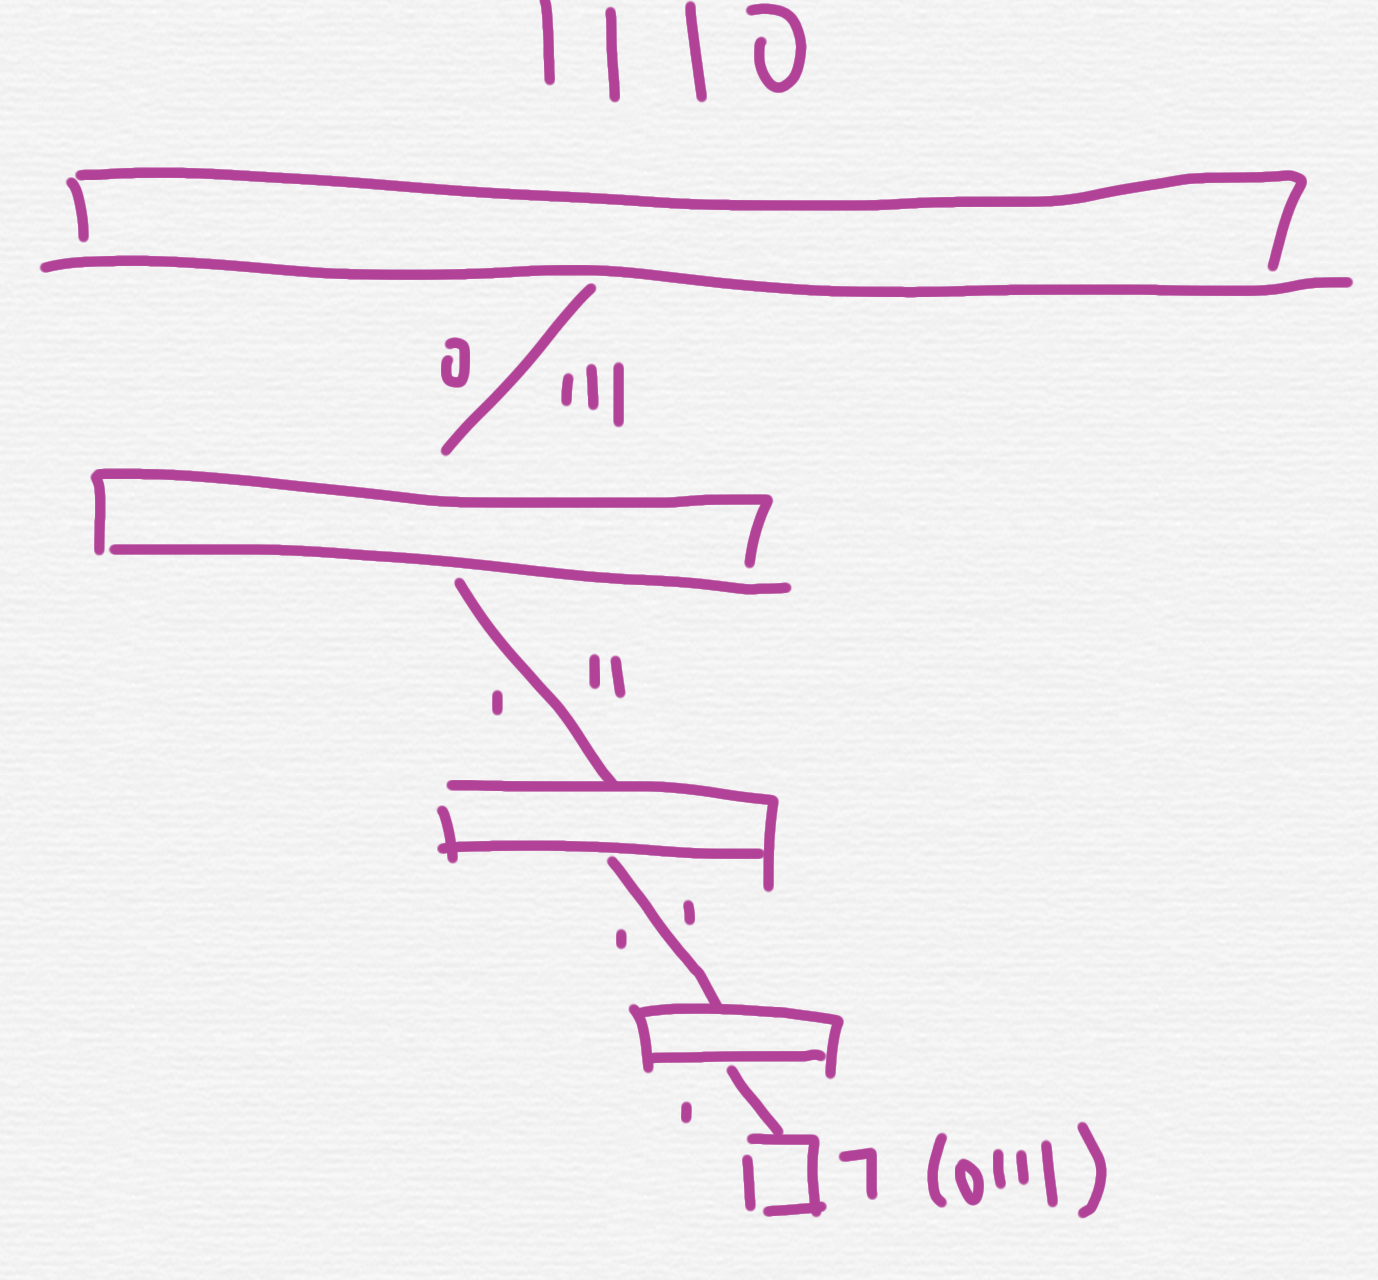 1110
0 111
1 11
1 1
1
7 (0111)